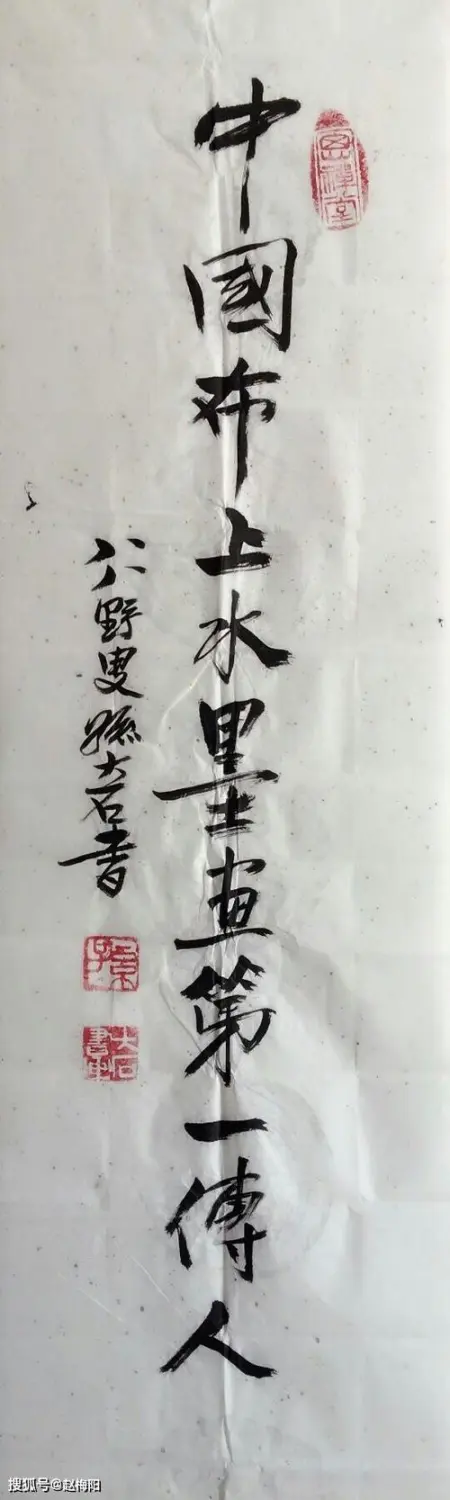 中國布上水墨画第一傳人
八八野叟孫大石書
孫
搜狐号@赵梅阳